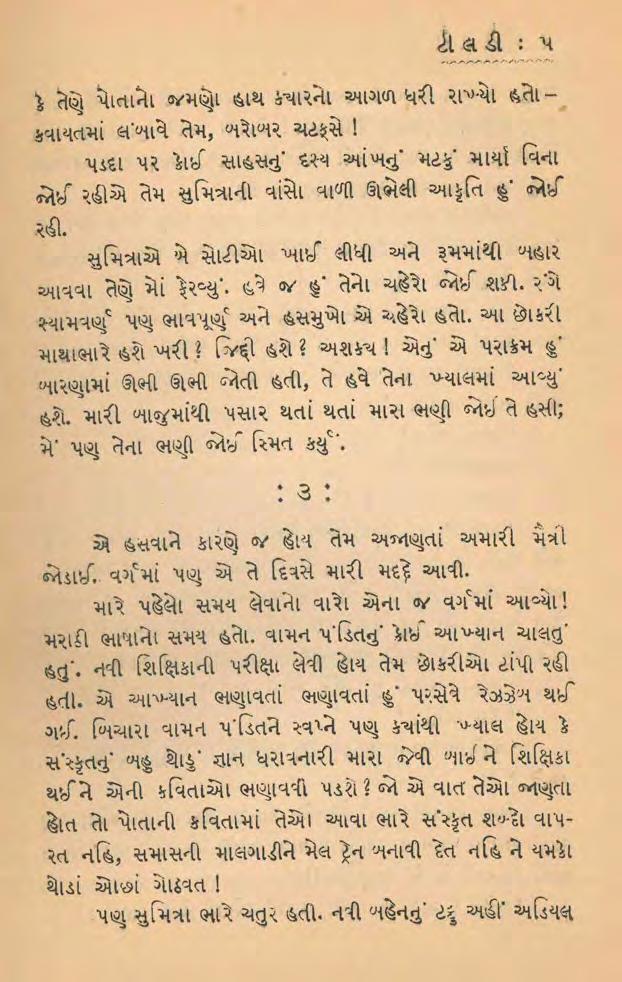 ટીલડી : ૫
કે તેણે પોતાનો જમણો હાથ ક્યારનો આગળ ધરી રાખ્યો હતો –
કવાયતમાં લંબાવે તેમ, બરોબર ચટક્સે !
પડદા પર કોઈ સાહસનું દૃસ્ય આંખનું મટકું માર્યા વિના
જોઈ રહીએ તેમ સુમિત્રાની વાંસો વાળી ઊભેલી આકૃતિ હું જોઈ
રહી.
સુમિત્રાએ બે સોટીઓ ખાઈ લીધી અને રૂમમાંથી બહાર
આવવા તેણે મોં ફેરવ્યું. હવે જ હું તેનો ચહેરો જોઈ શકી. રંગે
શ્યામવર્ણુ પણ ભાવપૂર્ણ અને હસમુખો એ ચહેરો હતો. આ છોકરી
માથાભારે હશે ખરી ? જિદ્દી હશે ? અશક્ય ! એનું એ પરાક્રમ હું
બારણામાં ઊભી ઊભી જોતી હતી, તે હવે તેના ખ્યાલમાં આવ્યું
હશે. મારી બાજુમાંથી પસાર થતાં થતાં મારા ભણી જોઈ તે હસી;
મેં પણ તેના ભણી જોઈ સ્મિત કર્યું.
: ૩ :
એ હસવાને કારણે જ હોય તેમ અજાણતાં અમારી મૈત્રી
જોડાઈ. વર્ગમાં પણ એ તે દિવસે મારી મદદે આવી.
મારે પહેલો સમય લેવાનો વારો એના જ વર્ગમાં આવ્યો !
મરાઠી ભાષાનો સમય હતો. વામન પંડિતનું કોઈ આખ્યાન ચાલતું
હતું. નવી શિક્ષિકાની પરીક્ષા લેવી હોય તેમ છોકરીઓ ટાંપી રહી
હતી. એ આખ્યાન ભણાવતાં ભણાવતાં હું પરસેવે રેઝઝેબ થઈ
ગઈ. બિચારા વામન પંડિતને સ્વપ્ને પણ ક્યાંથી ખ્યાલ હોય કે
સંસ્કૃતનું બહુ થોડું જ્ઞાન ધરાવનારી મારા જેવી બાઈને શિક્ષિકા
થઈને એની કવિતાઓ ભણાવવી પડશે ? જો એ વાત તેઓ જાણતા
હોત તો પોતાની કવિતામાં તેઓ આવા ભારે સંસ્કૃત શબ્દો વાપ-
રત નહિ, સમાસની માલગાડીને મેલ ટ્રેન બનાવી દેત નહિ ને યમકો
થોડાં ઓછાં ગોઠવત !
પણ સુમિત્રા ભારે ચતુર હતી. નવી બહેનનું ટટ્ટુ અહીં અડિયલ